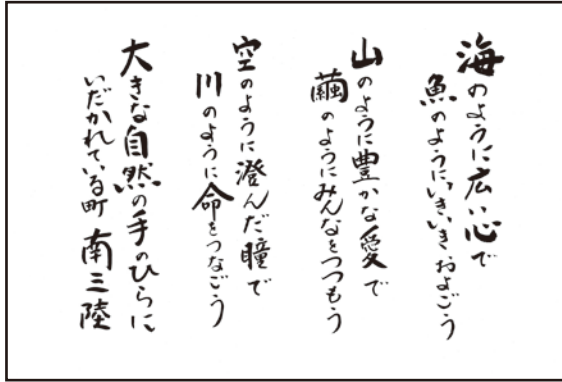 海のように広い心で
魚のようにいきいきおよごう
山のように豊かな愛で
繭のようにみんなをつつもう
空のように澄んだ瞳で
川のように命をつなごう
大きな自然の手のひらに
いだかれている町 南三陸